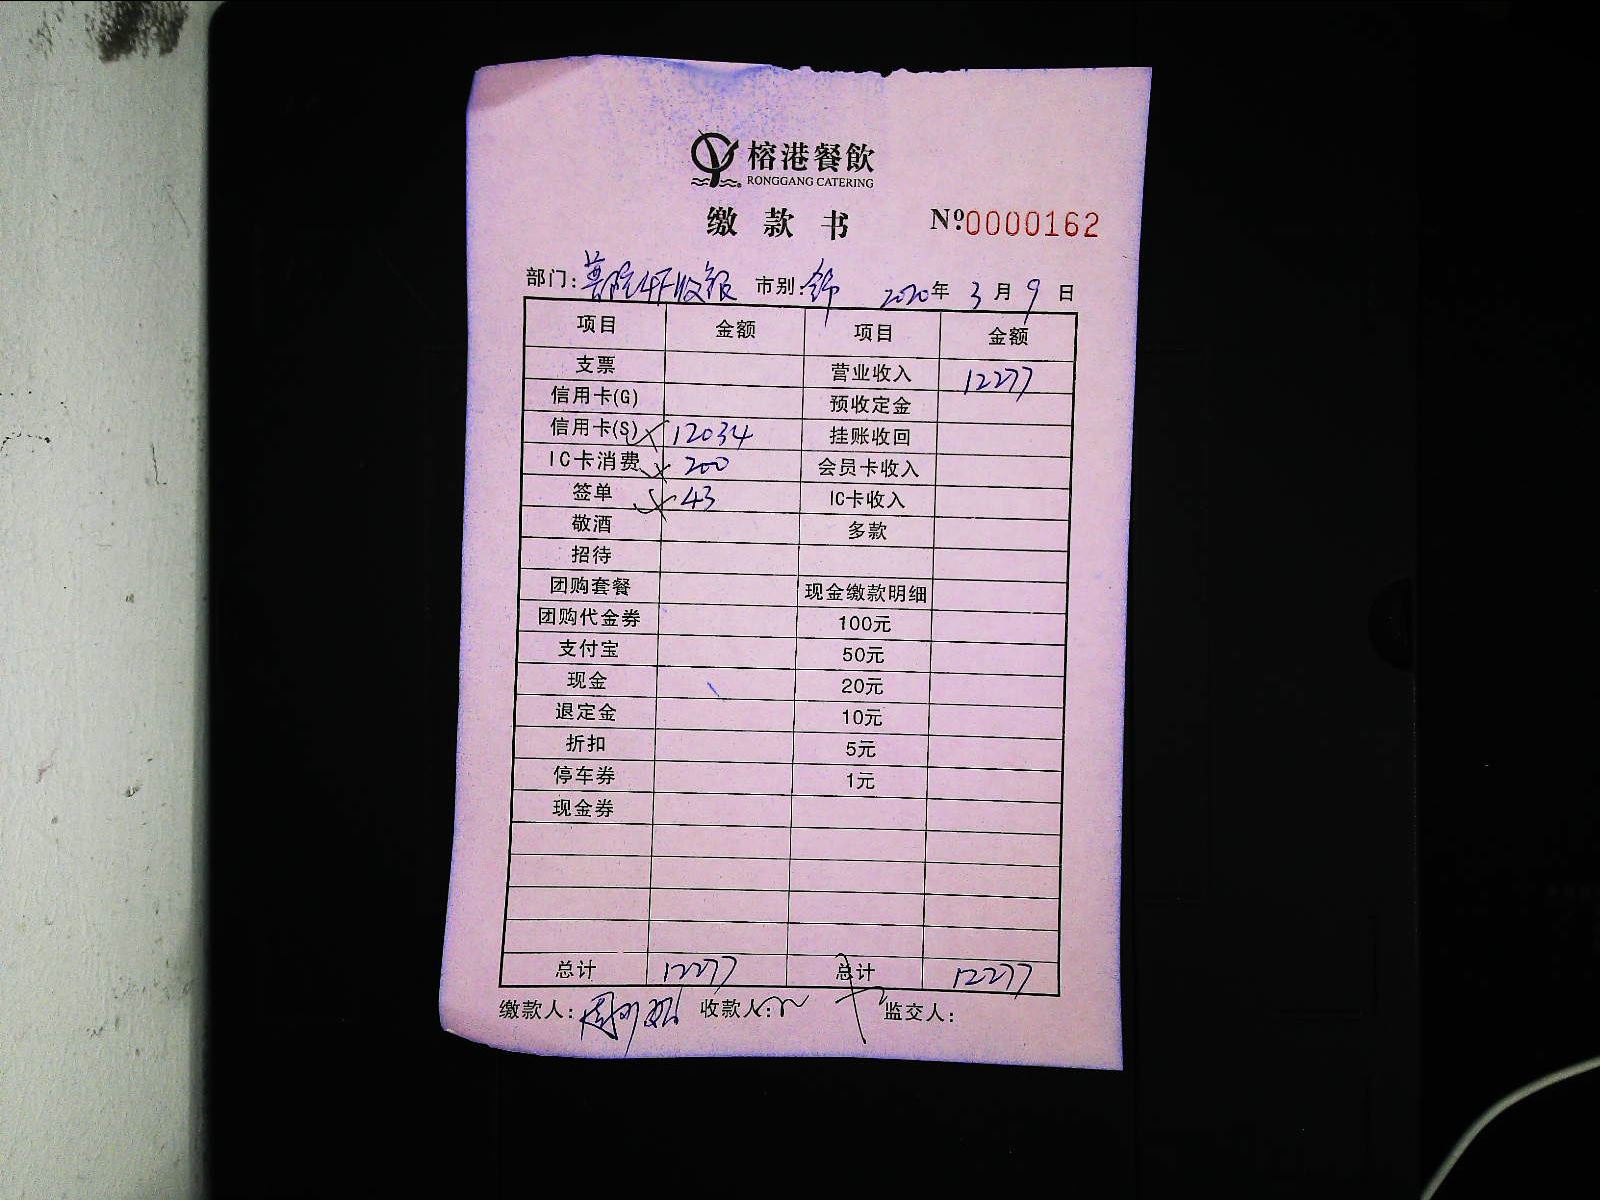 榕港餐飲
RONGGANG CATERING
缴款书 №0000162
部门: 收银 市别: 2020年3月9日
项目 金额 项目 金额
支票 营业收入 12277
信用卡(G) 预收定金
信用卡(S) 12034 挂账收回
IC卡消费 200 会员卡收入
签单 43 IC卡收入
敬酒 多款
招待
团购套餐 现金缴款明细
团购代金券 100元
支付宝 50元
现金 20元
退定金 10元
折扣 5元
停车券 1元
现金券
总计 12277 总计 12277
缴款人: 收款人: 监交人: